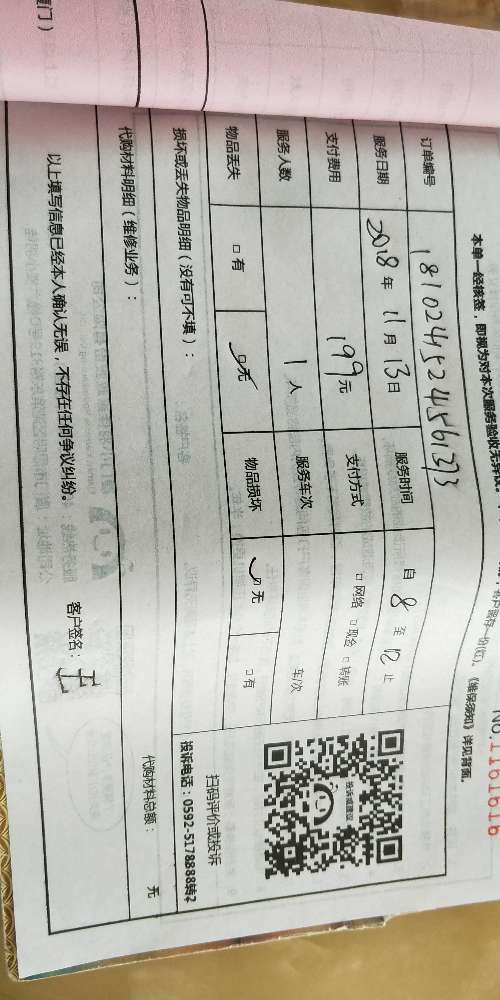 NO.1161616
本单一经核签，即视为对本次服务验收无异议
客户留存一份(红)。《维保须知》详见背面。
订单编号 1810241524561273
服务日期 2018年 11月 13日 服务时间 自 8 至 12 止
支付费用 199元 支付方式 □ 网络 □ 现金 □ 转账
服务人数 1 人 服务车次 车/次
物品丢失 □ 有 □ 无 物品损坏 □ 无 □ 有
损坏或丢失物品明细（没有可不填）：
扫码评价或投诉
投诉电话：0592-5178888转2
代购材料明细（维修业务）： 代购材料总额： 无
以上填写信息已经本人确认无误，不存在任何争议纠纷。 客户签名：
厦门）